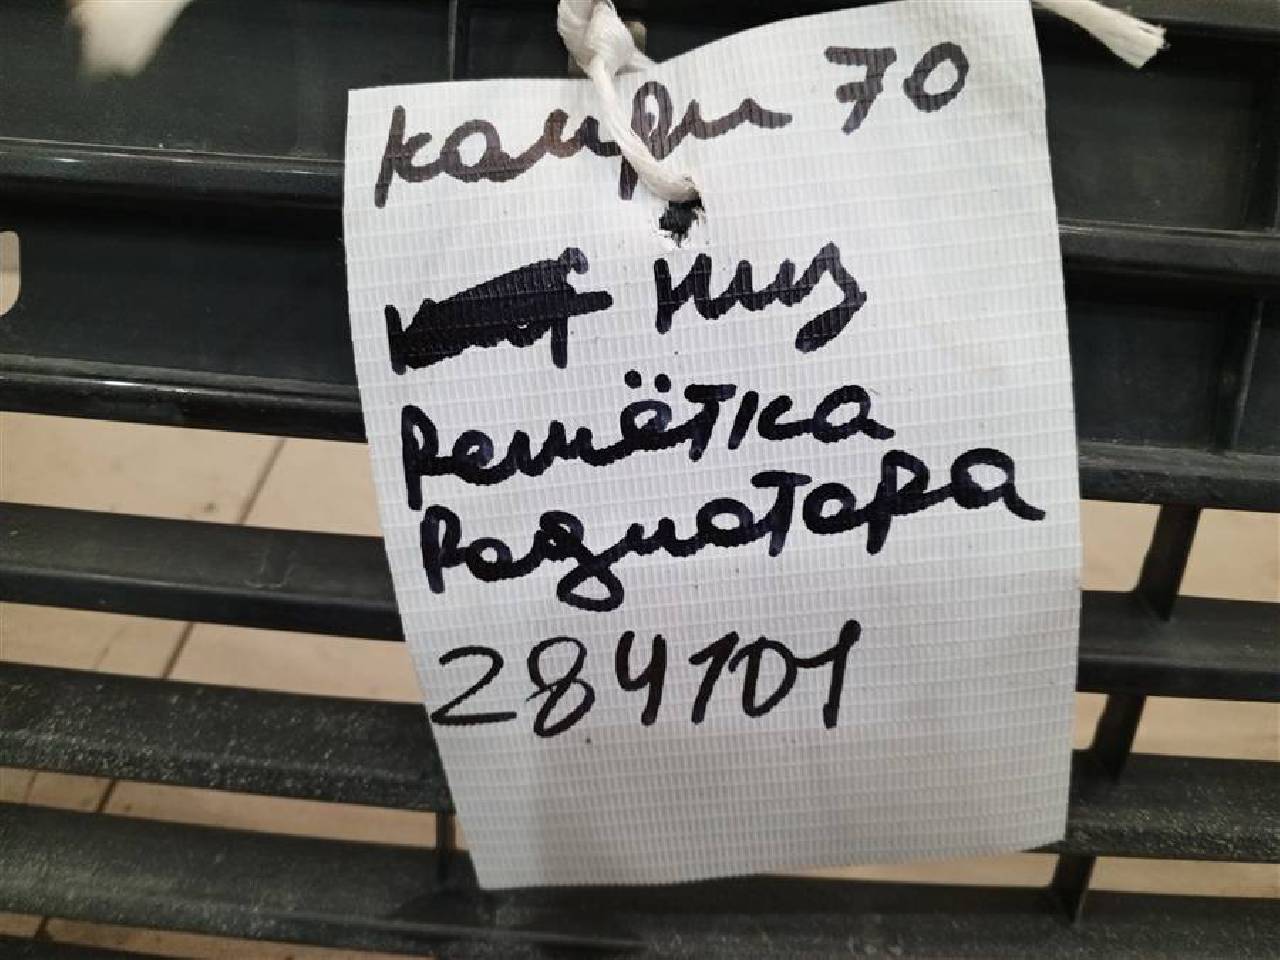 Камри 70
низ
Решётка
Радиатора
284101